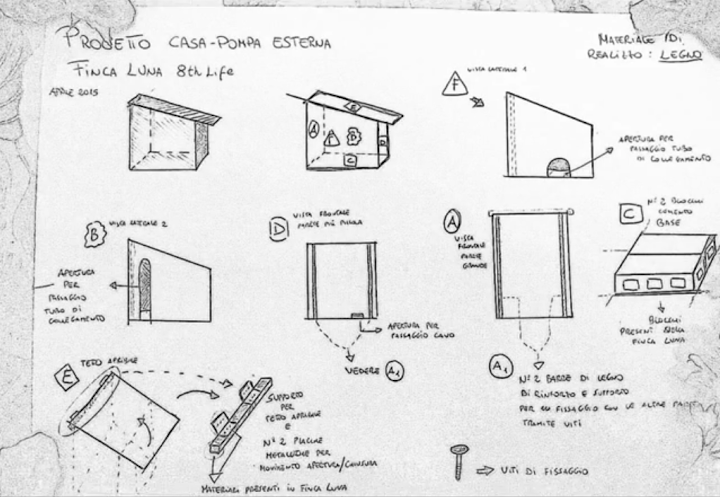 PROGETTO CASA-POMPA ESTERNA
FINCA LUNA 8th LIFE
APRILE 2015
MATERIALE DI
REALIZZO: LEGNO
A
F
B
E
D
C
F
VISTA LATERALE 1
APERTURA PER
PASSAGGIO TUBO
DI COLLEGAMENTO
B
VISTA LATERALE 2
APERTURA
PER
PASSAGGIO
TUBO DI
COLLEGAMENTO
D
VISTA FRONTALE
PARTE PIÙ PICCOLA
APERTURA PER
PASSAGGIO CAVO
VEDERE A1
A
VISTA
FRONTALE
PARTE
GRANDE
A1
N° 2 BARRE DI LEGNO
DI RINFORZO E SUPPORTO
PER IL FISSAGGIO CON LE ALTRE PARTI
TRAMITE VITI
C
N° 2 BLOCCHI
CEMENTO
BASE
BLOCCHI
PRESENTI NELLA
FINCA LUNA
E
TETTO APRIBILE
SUPPORTO
PER
TETTO APRIBILE
E
N° 2 PLACCHE
METALLICHE PER
MOVIMENTO APERTURA/CHIUSURA
MATERIALI PRESENTI IN FINCA LUNA
VITI DI FISSAGGIO